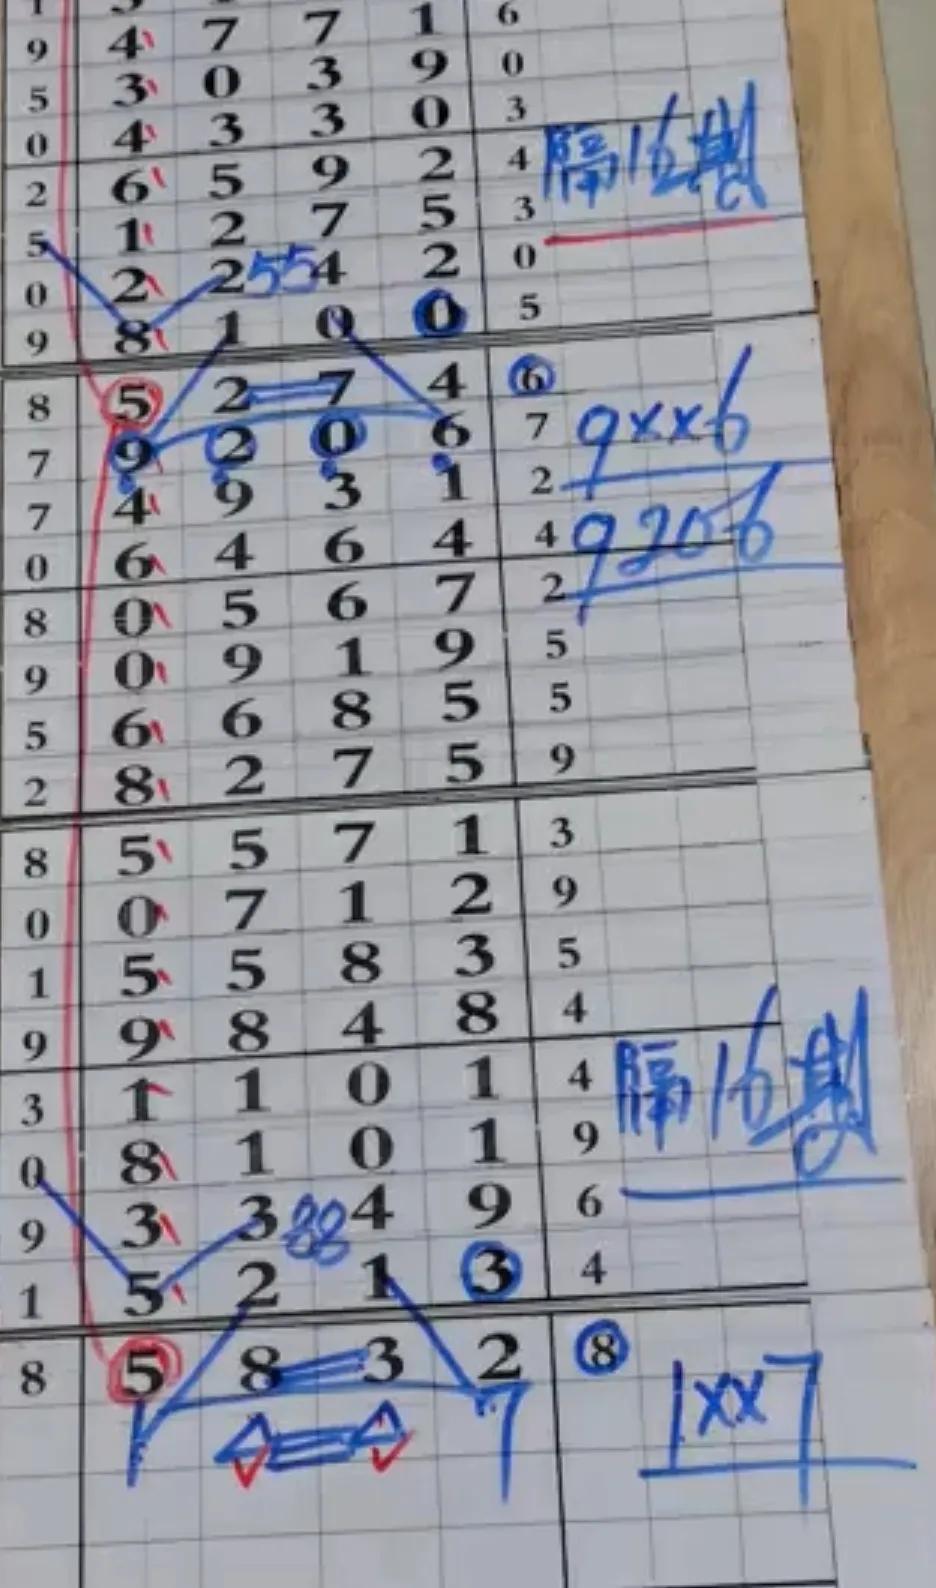 9 4 7 7 1 6
5 3 0 3 9 0
0 4 3 3 0 3
2 6 5 9 2 4 隔16期
5 1 2 7 5 3
0 2 2 55 4 2 0
9 8 1 0 0 5
8 5 2 7 4 6
7 9 2 0 6 7 9××6
7 4 9 3 1 2
0 6 4 6 4 4 9206
8 0 5 6 7 2
9 0 9 1 9 5
5 6 6 8 5 5
2 8 2 7 5 9
8 5 5 7 1 3
0 0 7 1 2 9
1 5 5 8 3 5
9 9 8 4 8 4
3 1 1 0 1 4 隔16期
0 8 1 0 1 9
9 3 3 88 4 9 6
1 5 2 1 3 4
8 5 8 3 2 8
1 7 1××7